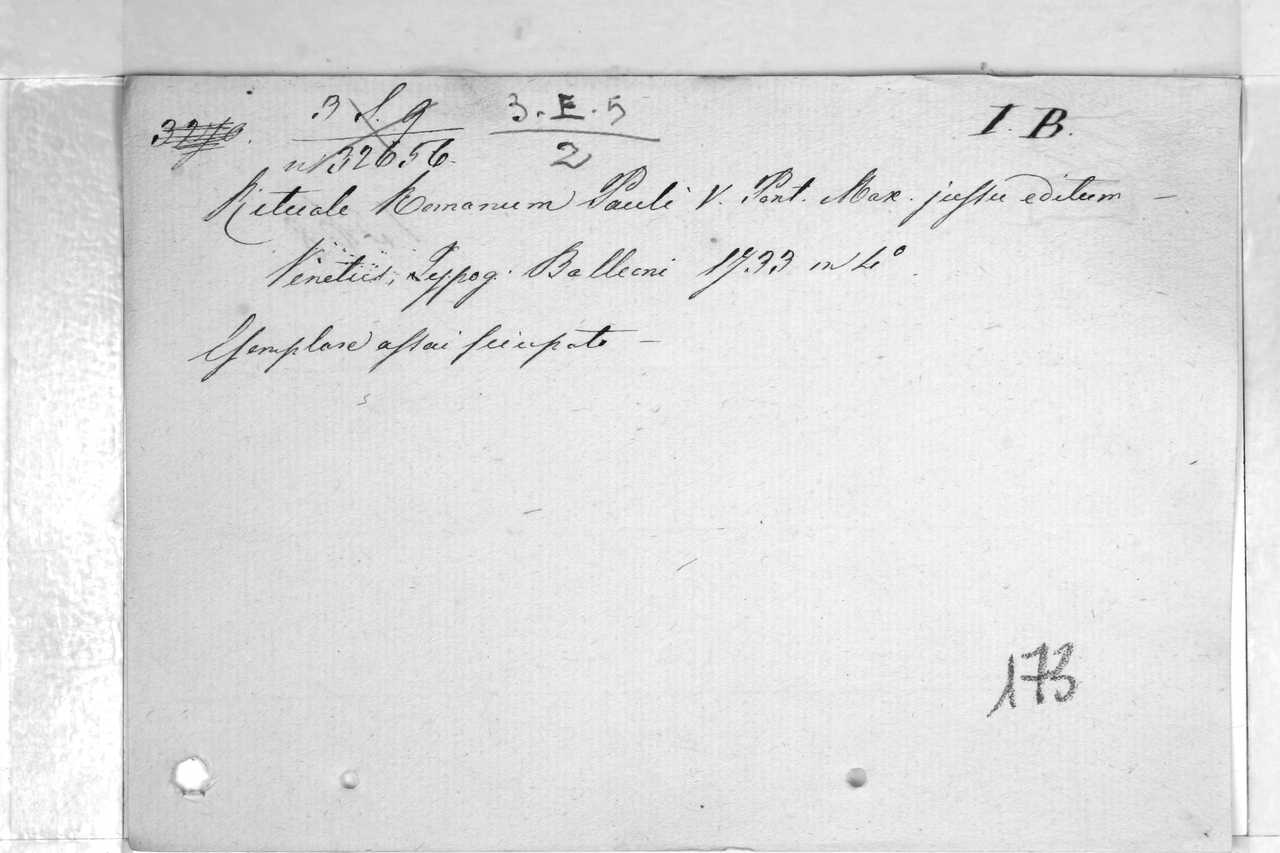 3 S. 9 3. E. 5 I. B.
n° 32656. 2
Rituale Romanum Pauli V. Pont. Max. jussu editum —
Venetiis, Typog. Balleoni 1733 in 4°.
Esemplare assai sciupato —
173